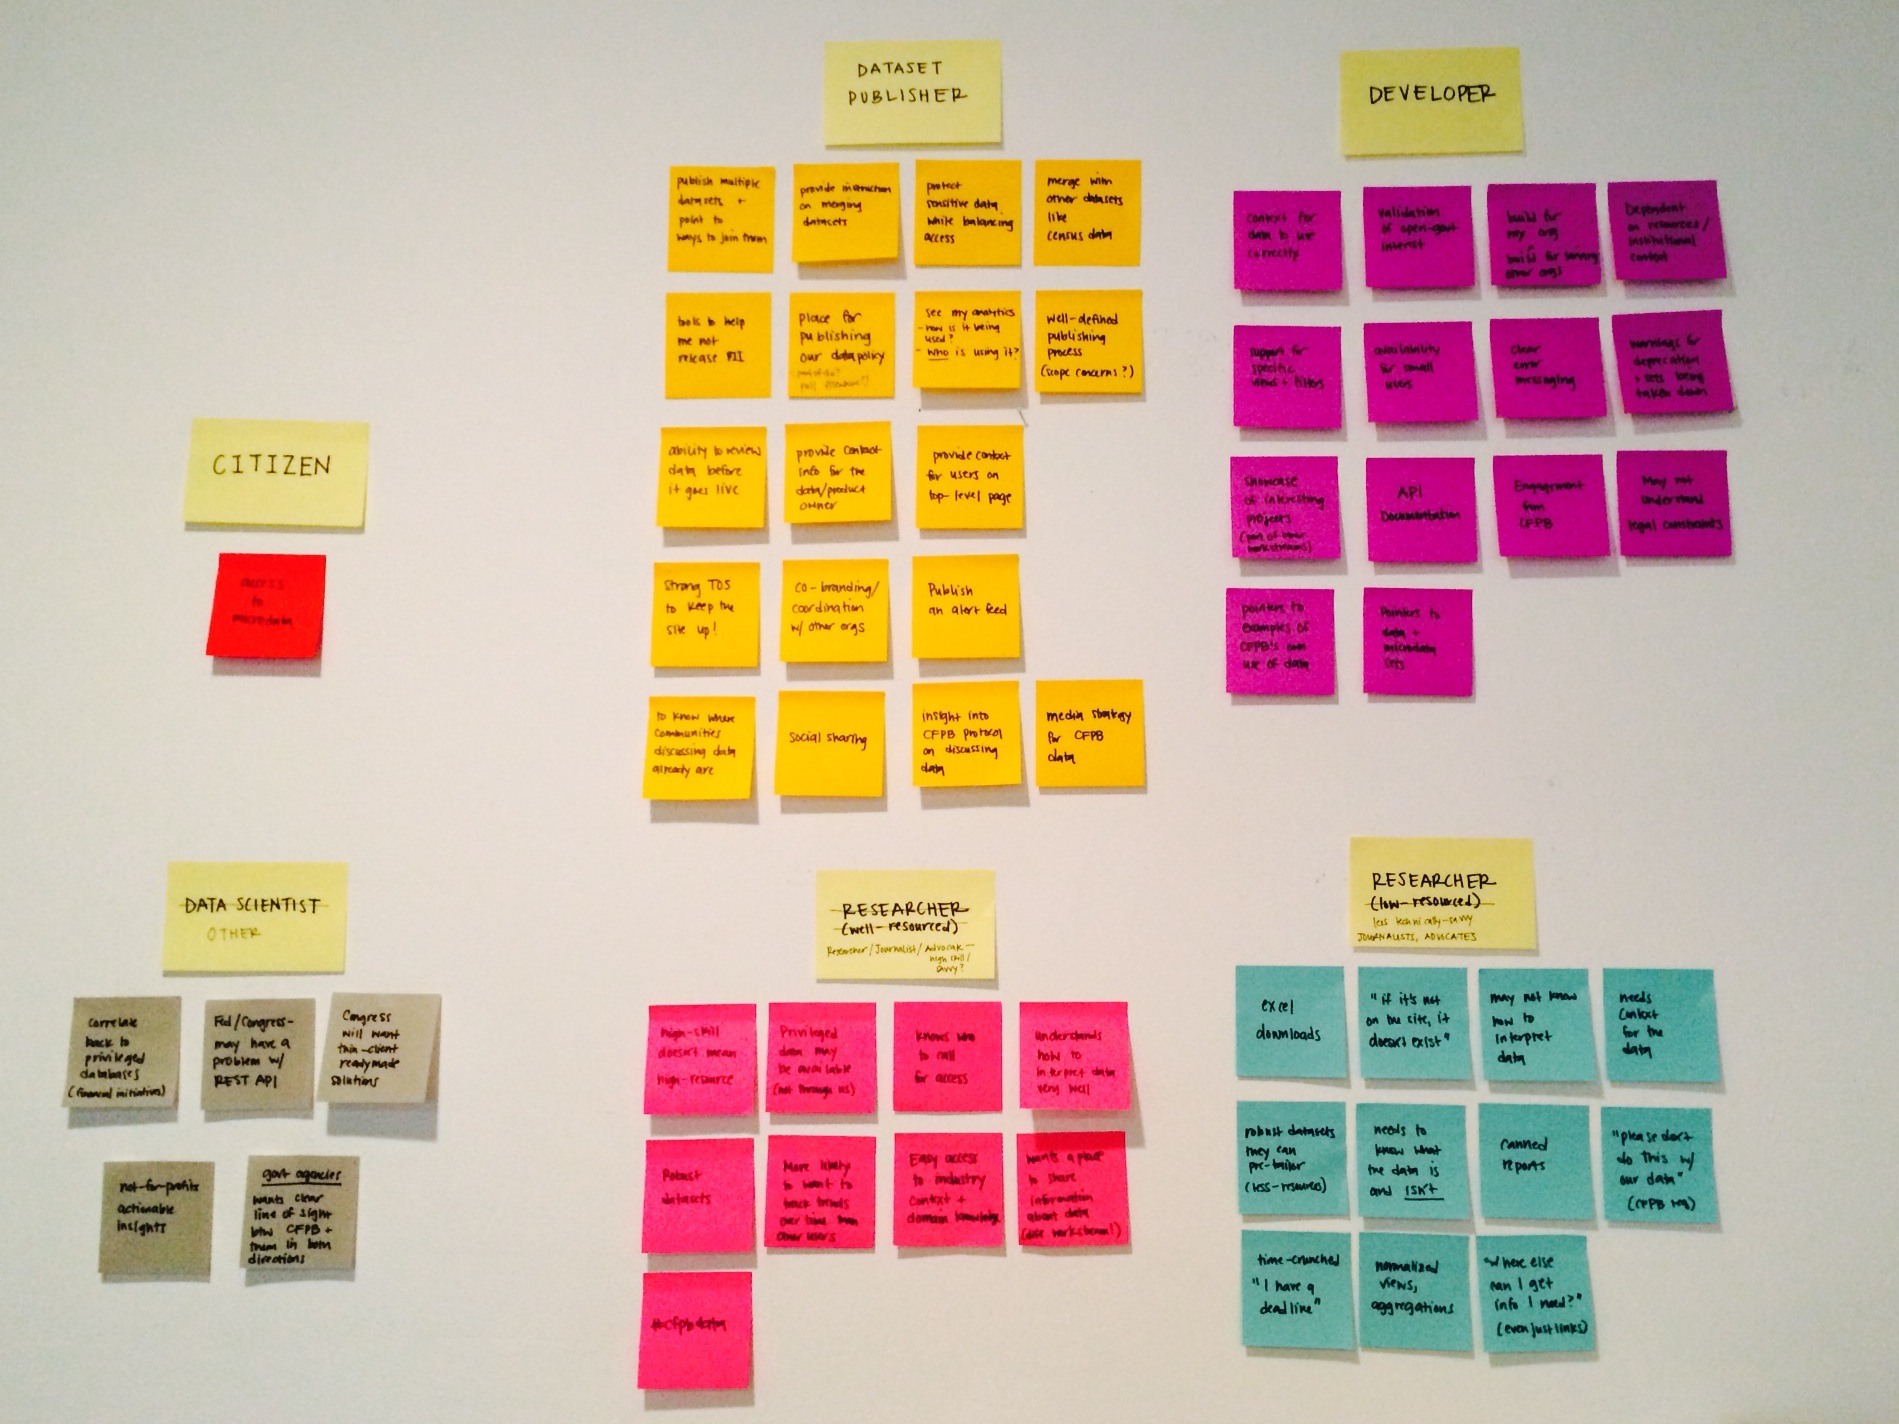 DATASET
PUBLISHER
publish multiple
datasets +
point to
ways to join them
provide instruction
on merging
datasets
protect
sensitive data
while balancing
access
merge with
other datasets
like
census data
tools to help
me not
release PII
place for
publishing
our data policy
see my analytics
- how is it being
used?
- who is using it?
well-defined
publishing
process
(scope concerns?)
ability to review
data before
it goes live
provide contact
info for the
data/product
owner
provide contact
for users on
top-level page
strong TOS
to keep the
site up!
co-branding/
coordination
w/ other orgs
Publish
an alert feed
to know where
communities
discussing data
already are
social sharing
insight into
CFPB protocol
on discussing
data
media strategy
for CFPB
data
DEVELOPER
context for
data to use
correctly
validation
of open-govt
interest
build for
my org
build for serving
other orgs
Dependent
on resources/
institutional
context
support for
specific
views + filters
availability
for small
users
clear
error
messaging
warnings for
deprecation
+ sets being
taken down
showcase
of interesting
projects
(part of other
workstreams)
API
Documentation
Engagement
from
CFPB
May not
understand
legal constraints
pointers to
examples of
CFPB's own
use of data
Pointers to
data +
microdata
sets
CITIZEN
access
to
microdata
DATA SCIENTIST
OTHER
correlate
back to
privileged
databases
(financial initiatives)
Fed/Congress-
may have a
problem w/
REST API
Congress
will want
thin-client
readymade
solutions
not-for-profits
actionable
insights
govt agencies
wants clear
line of sight
btw CFPB +
them in both
directions
RESEARCHER
(well-resourced)
Researcher/Journalist/Advocate-
high skill/
savvy?
high-skill
doesn't mean
high-resource
Privileged
data may
be available
(not through us)
knows who
to call
for access
understands
how to
interpret data
very well
Robust
datasets
More likely
to want to
track trends
over time than
other users
Easy access
to industry
context +
domain knowledge
wants a place
to share
information
about data
(diff workstream!)
#cfpbdata
RESEARCHER
(low-resourced)
less technically-savvy
JOURNALISTS, ADVOCATES
excel
downloads
"if it's not
on the site, it
doesn't exist"
may not know
how to
interpret
data
needs
context
for the
data
robust datasets
they can
pre-tailor
(less-resources)
needs to
know what
the data is
and ISN'T
canned
reports
"please don't
do this w/
our data"
(CFPB req)
time-crunched
"I have a
deadline"
normalized
views,
aggregations
"where else
can I get
info I need?"
(even just links)